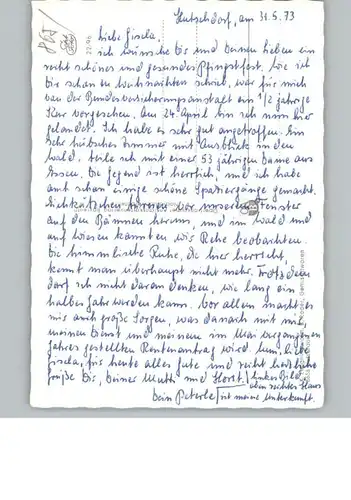 Hutschdorf, am 31.5.73
Liebe Gisela,
ich wünsche dir und deinen lieben ein
recht schönes und gesundes Pfingstfest. Wie ich
dir schon zu Weihnachten schrieb, war für mich
von der Bundesversicherungsanstalt ein 1/2 jährige
Kur vorgesehen. Am 24. April bin ich nun hier
gelandet. Ich habe es sehr gut angetroffen. Ein
sehr hübsches Zimmer mit Ausblick in den
Wald, teile ich mit einer 53 jährigen Dame aus
Essen. Die Gegend ist herrlich, und ich habe
auch schon einige schöne Spaziergänge gemacht.
Eichkätzchen turnen vor unserem Fenster
auf den Bäumen herum, und im Wald und
auf Wiesen konnten wir Rehe beobachten.
Die himmlische Ruhe, die hier herrscht,
kennt man überhaupt nicht mehr. Trotzdem
darf ich nicht daran denken, wie lang ein
halbes Jahr werden kann. Vor allem macht es
mir auch große Sorgen, was danach mit mir,
meinem Dienst und meinem im Mai vergangenen
Jahres gestellten Rentenantrag wird. Nun, liebe
Gisela, für heute alles Gute und recht herzliche
Grüße dir, deiner Mutti und Horst,
dein Peterle
linkes Bild
das rechte Haus
ist meine Unterkunft.